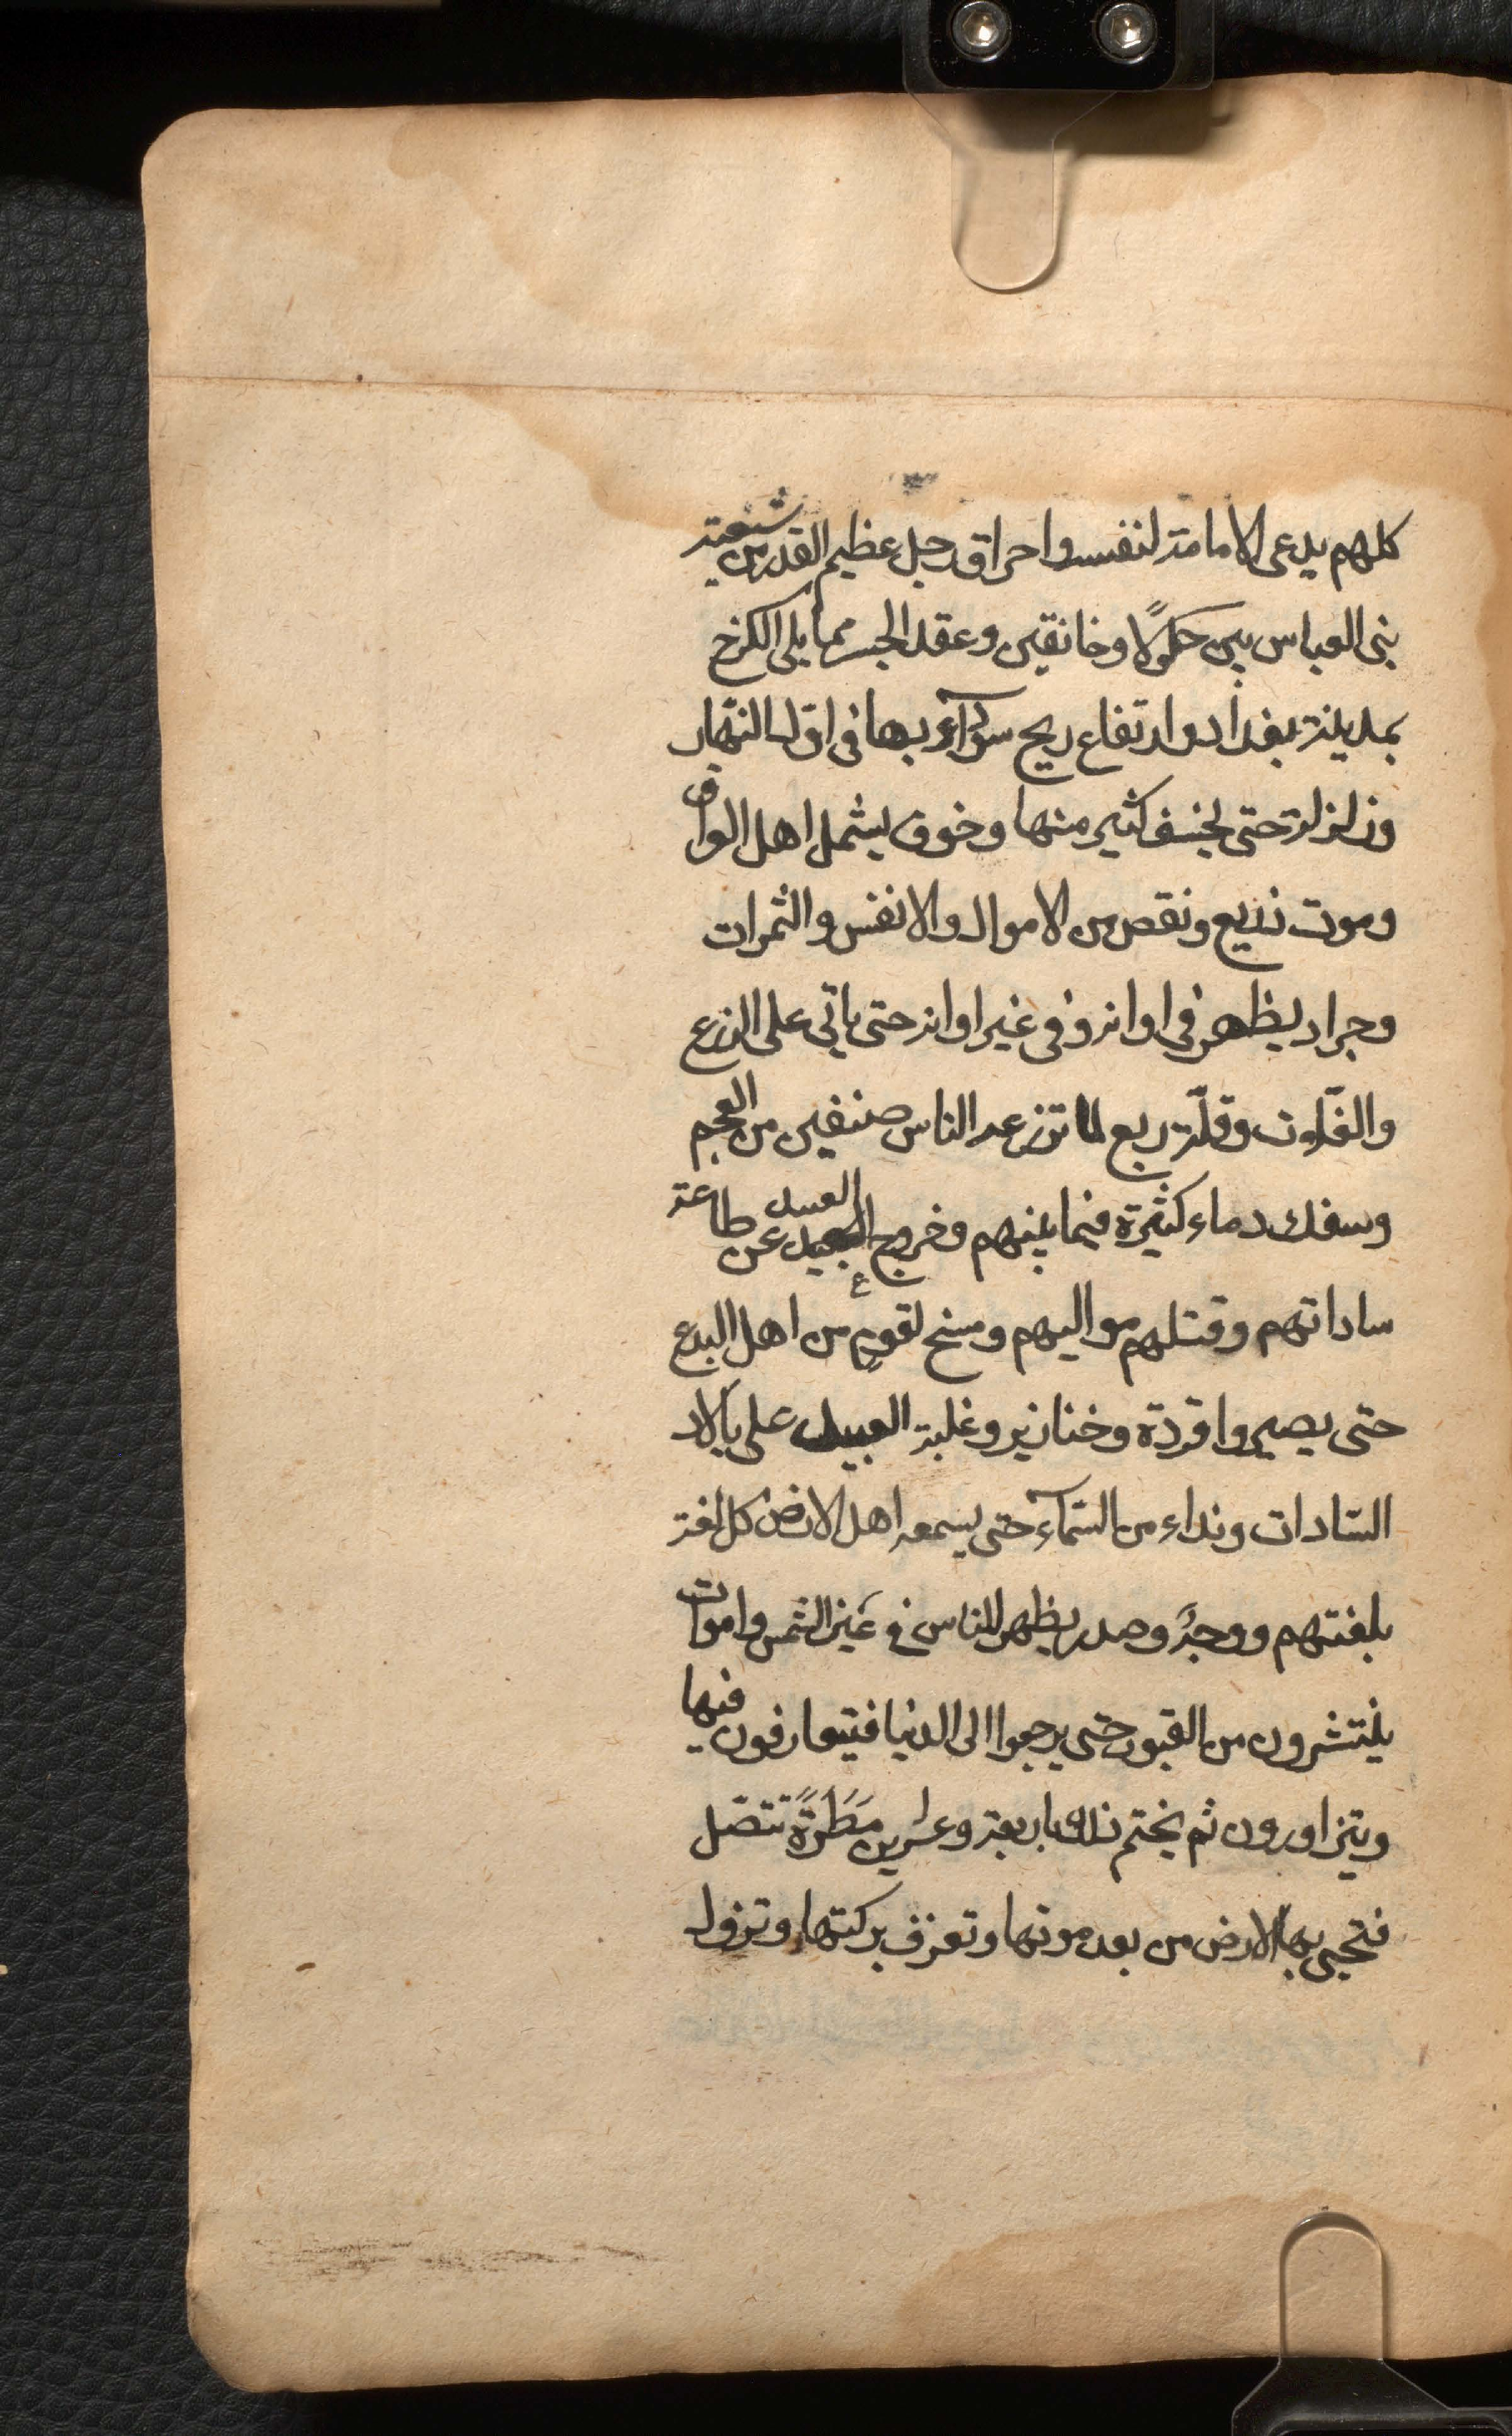 كلهم يدعى الامامة لنفسه واحراق رجل عظيم القدر من شيعة
بنى العباس بين حلولا وخانقين وعقد الجسر مما يلى الكرخ
بمدينة بغداد وارتفاع ريح سوداء بها فى اوّل النّهار
وزلزلة حتى يخسف كثير منها وخوف يشمل اهل العراق
وموت ذريع ونقص من الاموال والانفس والثمرات
وجراد يظهر فى اوانه وفى غير اوانه حتى ياتى على الزرع
والغلّات وقلّة ريع لما تزرعه الناس صنفين من العجم
وسفك دماء كثيرة فيما بينهم وخروج العبيد عن طاعة
ساداتهم وقتلهم مواليهم ومسخ لقومٍ من اهل البدع
حتى يصيروا قردة وخنازير وغلبة العبيد على بلاد
السّادات ونداء من السّماء حتى يسمعه اهل الارض كل لغة
بلغتهم ووجهٌ وصدر يظهر للناس فى عين الشمس واموات
ينتشرون من القبور حتى يرجعوا الى الدنيا فيتعارفون فيها
ويتزاورون ثم يختم ذلك باربعة وعشرين مَطَرَةً تتصّل
فتحيى بها الارض من بعد موتها وتعرف بركتها وتزول